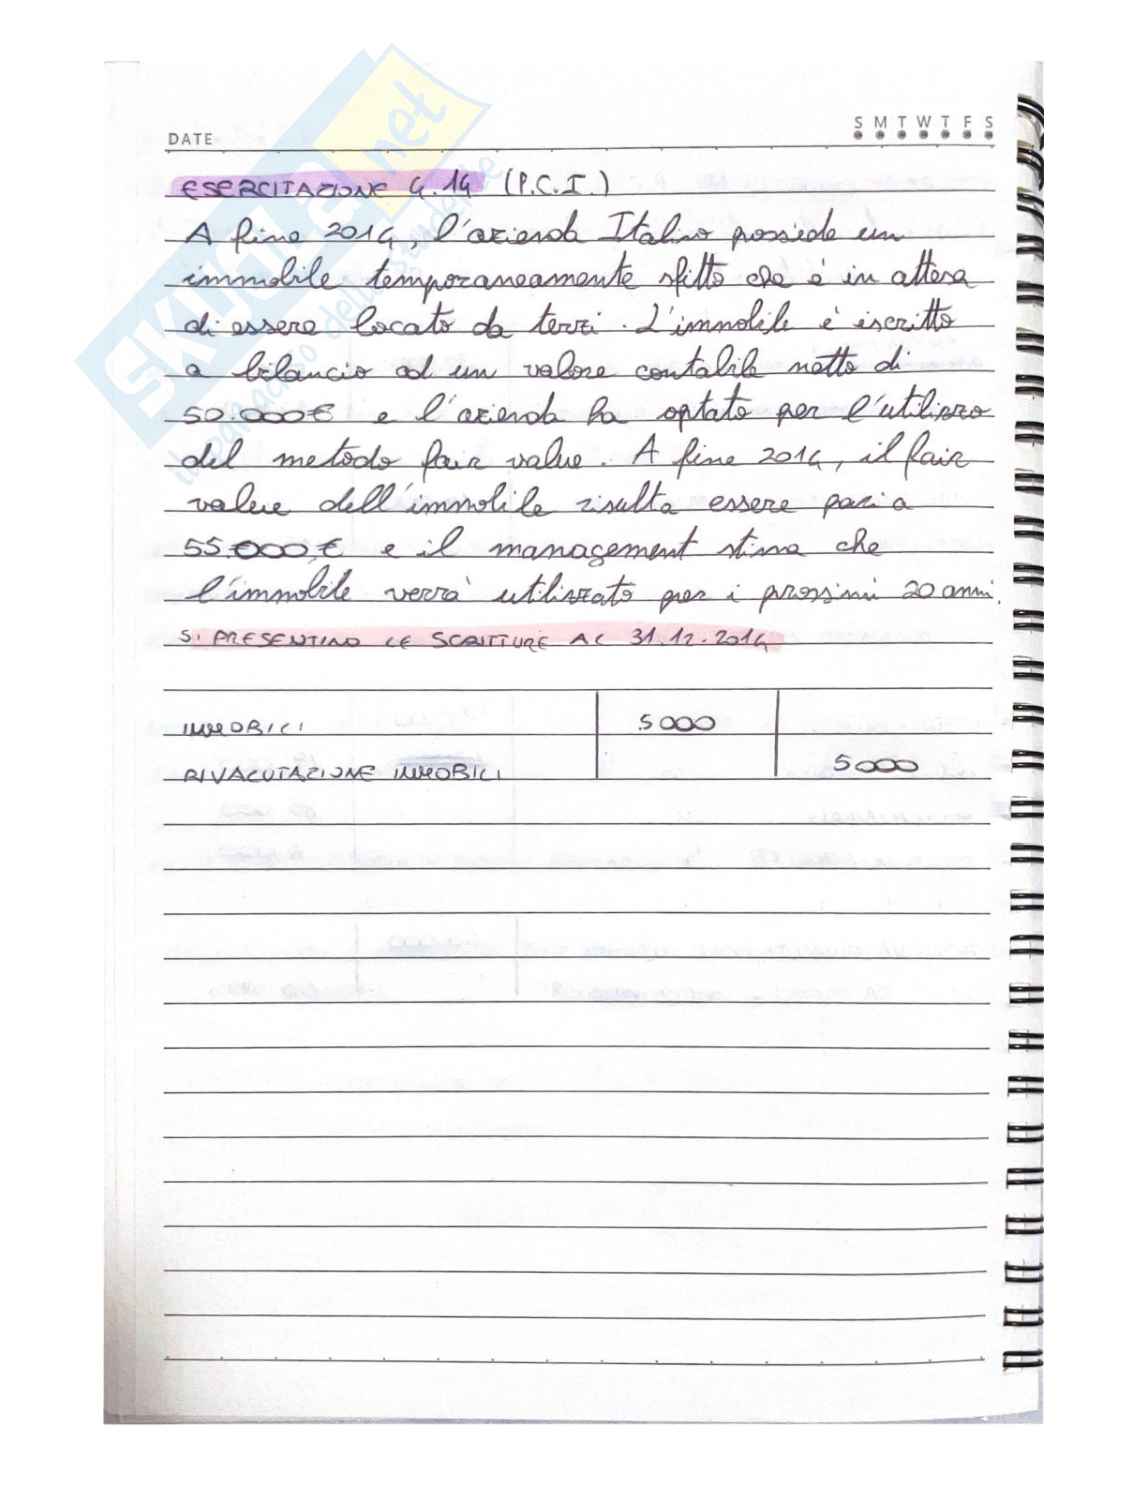 DATE
S M T W T F S
ESERCITAZIONE 4.14 (P.C.I.)
A fine 2014, l'azienda Italino possiede un
immobile temporaneamente sfitto che è in attesa
di essere locato da terzi. L'immobile è iscritto
a bilancio ad un valore contabile netto di
50.000€ e l'azienda ha optato per l'utilizzo
del metodo fair value. A fine 2014, il fair
value dell'immobile risulta essere pari a
55.000,€ e il management stima che
l'immobile verrà utilizzato per i prossimi 20 anni.
SI PRESENTINO LE SCRITTURE AL 31.12.2014
IMMOBILI 5000
RIVALUTAZIONE IMMOBILI 5000
SKUOLA.net
il paradiso dello studente